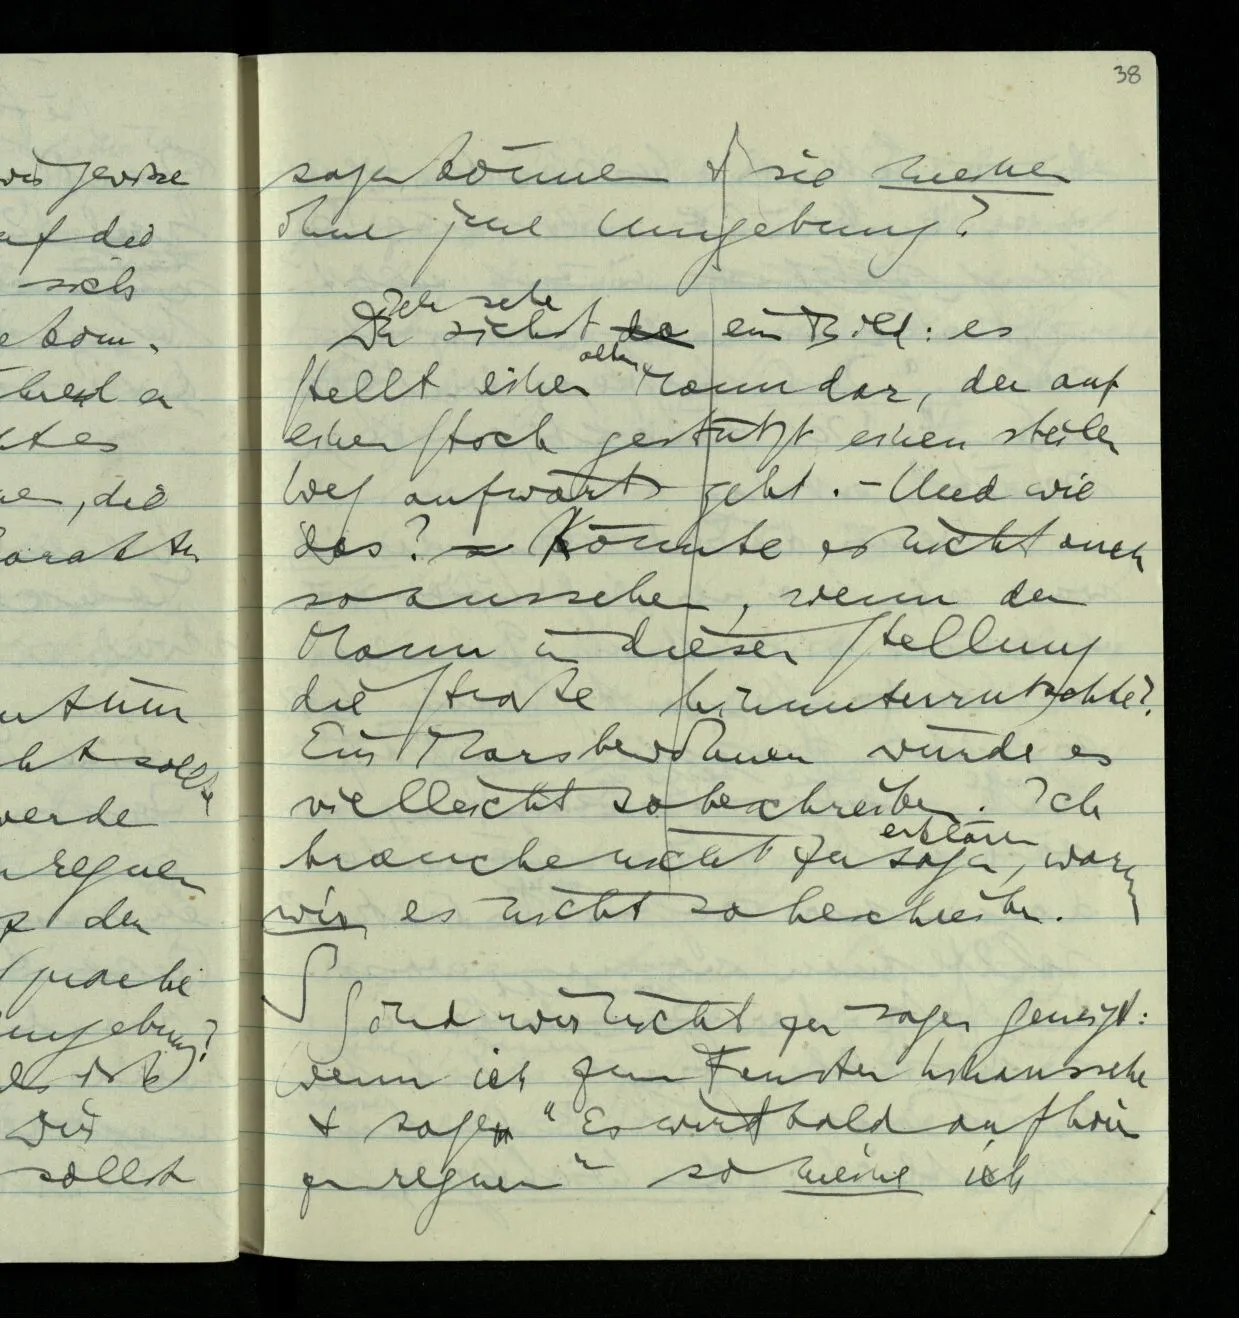 38
wir gewisse
auf die
sich
ekom-
ktes
, die
arakter
sollte
werde
regnen
den
Sprache
Umgebung?
es ist
Dir
sollst
sagen können & sie meinen
ohne jene Umgebung?
Ich sehe
Du siehst da ein Bild: es
alten
stellt einen Mann dar, der auf
einen Stock gestützt einen steilen
Weg aufwärts geht. – Und wie
das? – Könnte es nicht auch
so aussehen, wenn der
Mann in dieser Stellung
die Straße hinunterrutschte?
Ein Marsbewohner würde es
vielleicht so beschreiben. Ich
erklären
brauche nicht zu sagen, warum
wir es nicht so beschreiben.
S Sind wir nicht zu sagen geneigt:
wenn ich zum Fenster hinaussehe
& sage „Es wird bald aufhören
zu regnen“ so meine ich